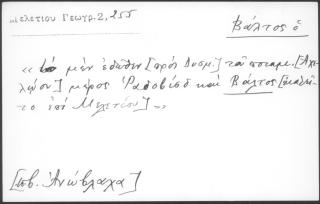 Μελετίου Γεωγρ. 2, 255
Βάλτος ὁ
«τὸ μὲν ἔνθεν [πρὸς Δυσμ.] τοῦ ποταμ. [Ἀχ-
ελῴου] μέρος Ῥαδοβίσδ καὶ Βάλτος [καλεῖ-
το ἐπὶ Μελετίου]»
[πβ. Ἀνώβλαχα]